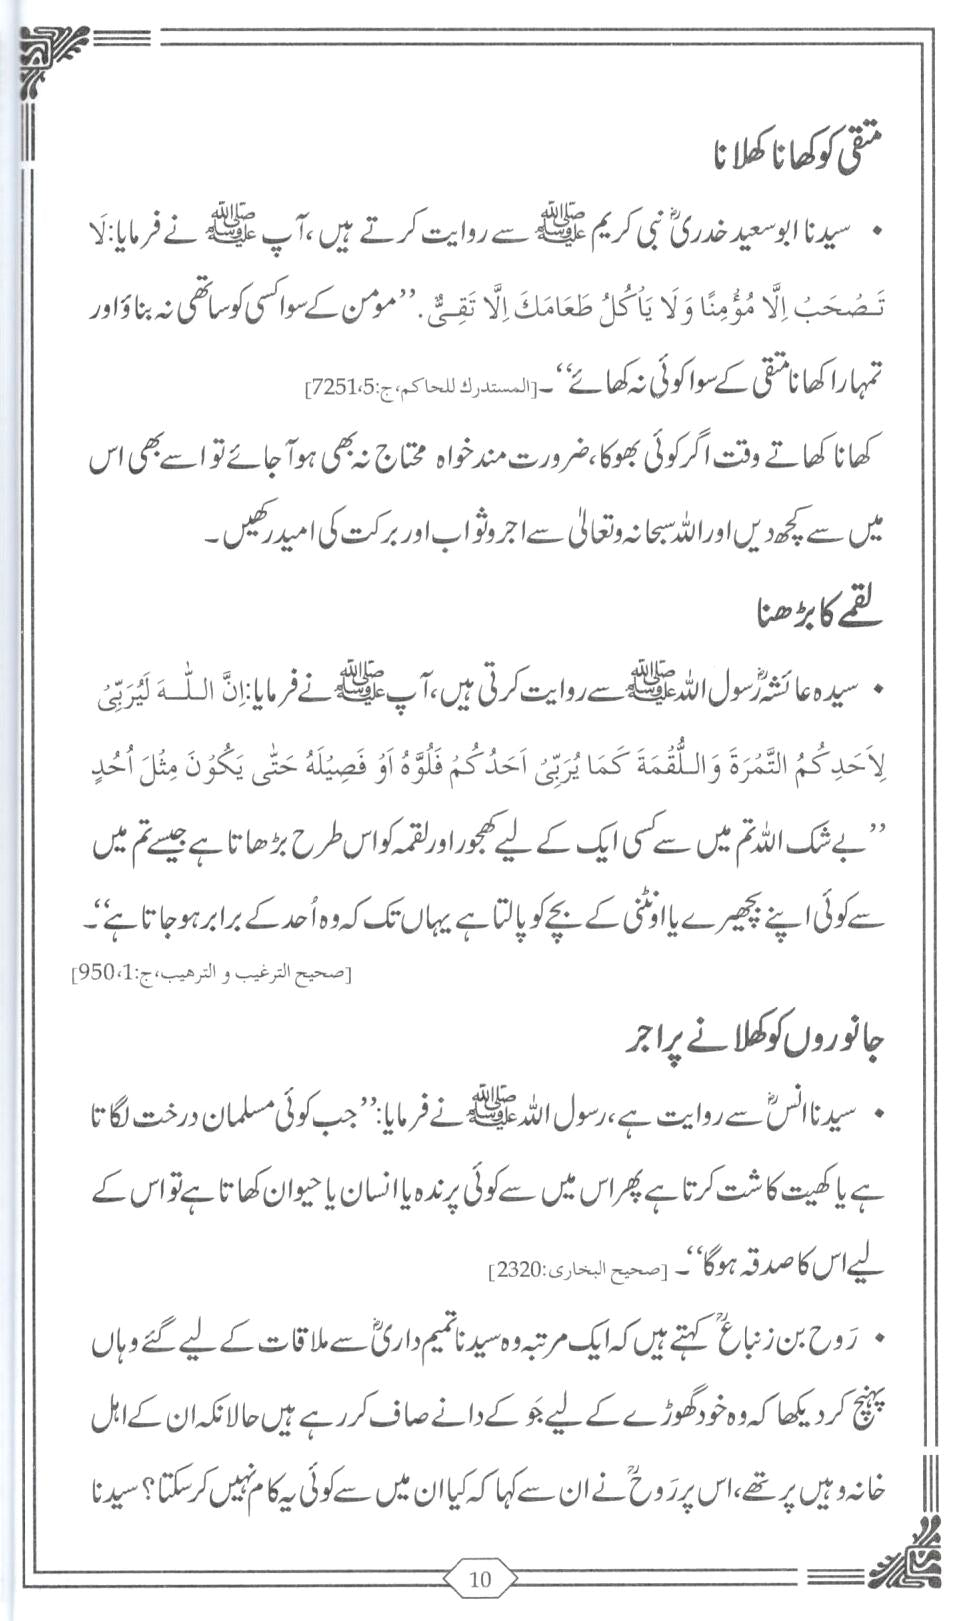 متقی کو کھانا کھلانا
• سیدنا ابو سعید خدریؓ نبی کریم ﷺ سے روایت کرتے ہیں، آپ ﷺ نے فرمایا: لَا
تَصْحَبْ اِلَّا مُؤْمِنًا وَلَا يَاْكُلْ طَعَامَكَ اِلَّا تَقِىٌّ. ’’مؤمن کے سوا کسی کو ساتھی نہ بناؤ اور
تمہارا کھانا متقی کے سوا کوئی نہ کھائے‘‘۔ [المستدرك للحاكم، ج:5، 7251]
کھانا کھاتے وقت اگر کوئی بھوکا، ضرورت مند خواہ محتاج نہ بھی ہو آ جائے تو اسے بھی اس
میں سے کچھ دیں اور اللہ سبحانہ وتعالیٰ سے اجر و ثواب اور برکت کی امید رکھیں۔
لقمے کا بڑھنا
• سیدہ عائشہؓ رسول اللہ ﷺ سے روایت کرتی ہیں، آپ ﷺ نے فرمایا: اِنَّ اللّٰهَ لَيُرَبِّىْ
لِاَحَدِكُمُ التَّمْرَةَ وَاللُّقْمَةَ كَمَا يُرَبِّىْ اَحَدُكُمْ فَلُوَّهٗ اَوْ فَصِيْلَهٗ حَتّٰى يَكُوْنَ مِثْلَ اُحُدٍ
’’بے شک اللہ تم میں سے کسی ایک کے لیے کھجور اور لقمہ کو اس طرح بڑھاتا ہے جیسے تم میں
سے کوئی اپنے بچھیرے یا اونٹنی کے بچے کو پالتا ہے یہاں تک کہ وہ اُحد کے برابر ہو جاتا ہے‘‘۔
[صحیح الترغیب و الترھیب، ج:1، 950]
جانوروں کو کھلانے پر اجر
• سیدنا انسؓ سے روایت ہے، رسول اللہ ﷺ نے فرمایا: ’’جب کوئی مسلمان درخت لگاتا
ہے یا کھیت کاشت کرتا ہے پھر اس میں سے کوئی پرندہ یا انسان یا حیوان کھاتا ہے تو اس کے
لیے اس کا صدقہ ہوگا‘‘۔ [صحیح البخاری:2320]
• رَوح بن زنباعؒ کہتے ہیں کہ ایک مرتبہ وہ سیدنا تمیم داریؓ سے ملاقات کے لیے گئے وہاں
پہنچ کر دیکھا کہ وہ خود گھوڑے کے لیے جَو کے دانے صاف کر رہے ہیں حالانکہ ان کے اہل
خانہ وہیں پر تھے، اس پر رَوحؒ نے ان سے کہا کہ کیا ان میں سے کوئی یہ کام نہیں کر سکتا؟ سیدنا
10